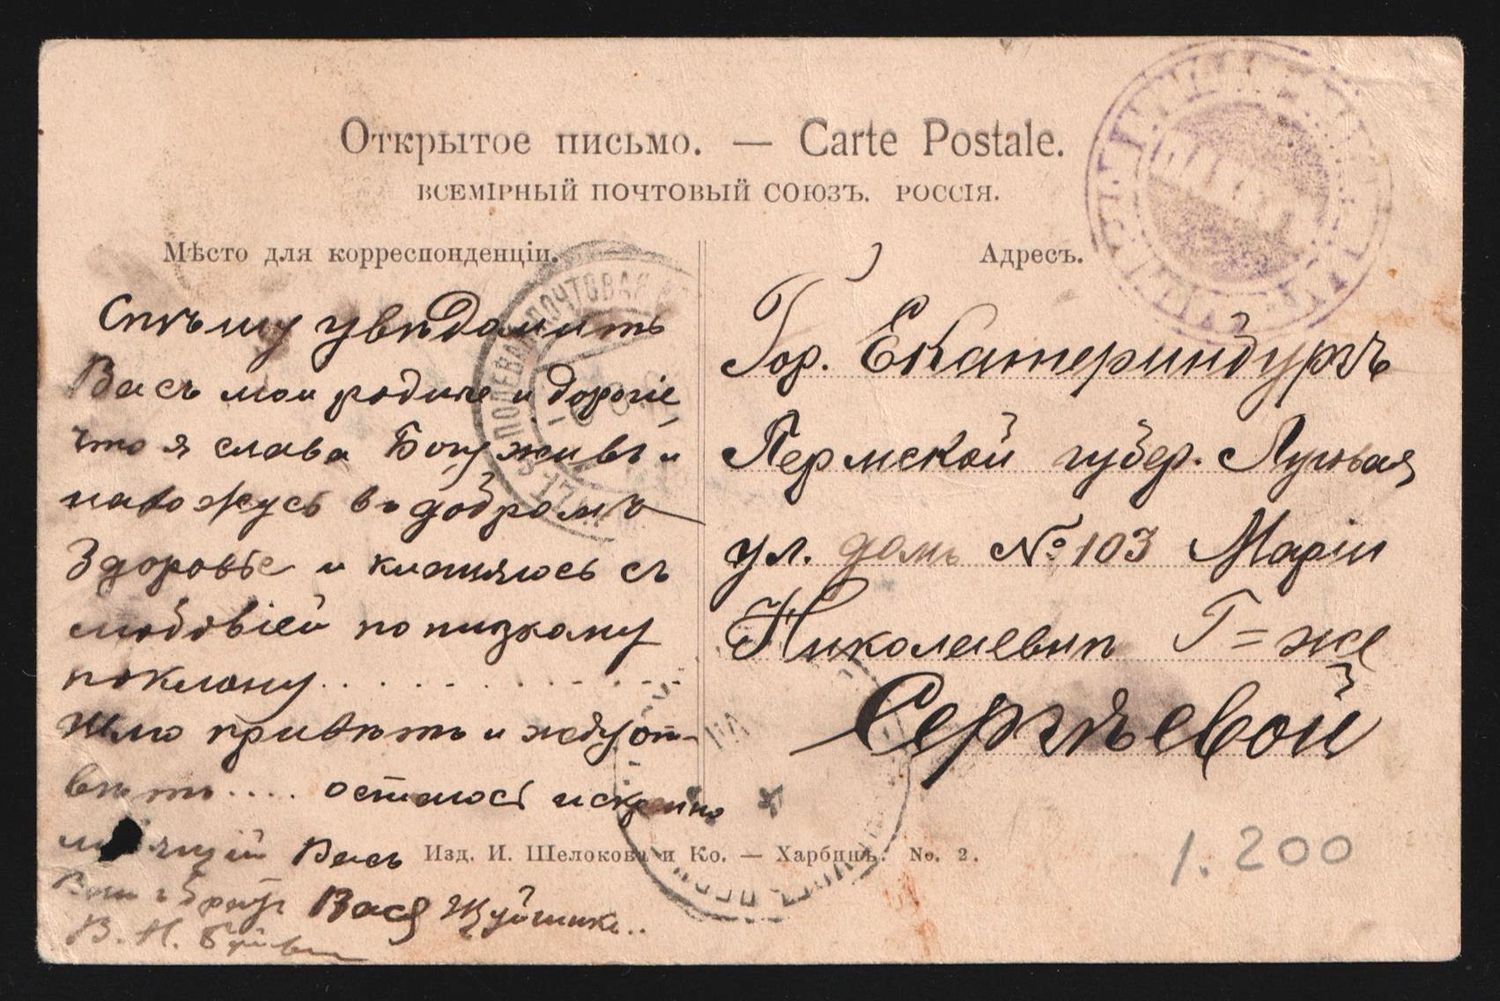 Открытое письмо. — Carte Postale.
ВСЕМІРНЫЙ ПОЧТОВЫЙ СОЮЗЪ. РОССІЯ.
Мѣсто для корреспонденціи.
Спѣшу увѣдомить
Васъ мои родные и дорогіе,
что я слава Богу живъ и
нахожусь въ добромъ
здоровьѣ и кланяюсь съ
любовіей по низкому
поклону.............
шлю привѣтъ и жду от-
вѣтъ.... остаюсь искренно
любящій Васъ
Вашъ братъ Вася
В. Н.
Адресъ.
Гор. Екатеринбургъ
Пермской губер. Луговая
ул. домъ № 103 Маріи
Николаевнѣ Г=же
Сергѣевой
Изд. И. Щелокова и Ко. — Харбинъ. No. 2.
ПОЛЕВАЯ ПОЧТОВАЯ
VIII
1.200